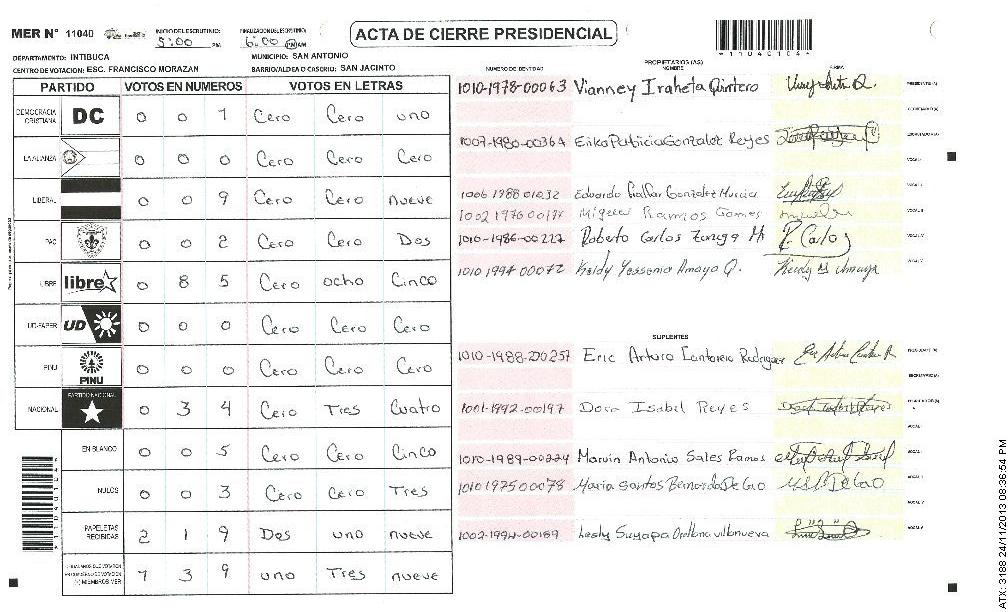 MER N° 11040 INICIO DEL ESCRUTINIO: 5:00 PM FINALIZACION DEL ESCRUTINIO: 6:00 PM AM ACTA DE CIERRE PRESIDENCIAL
DEPARTAMENTO: INTIBUCA MUNICIPIO: SAN ANTONIO
CENTRO DE VOTACION: ESC. FRANCISCO MORAZAN BARRIO/ALDEA O CASERIO: SAN JACINTO
PARTIDO VOTOS EN NUMEROS VOTOS EN LETRAS
DEMOCRACIA CRISTIANA DC 0 0 1 Cero Cero uno
LA ALIANZA 0 0 0 Cero Cero Cero
LIBERAL 0 0 9 Cero Cero nueve
PAC 0 0 2 Cero Cero Dos
LIBRE libre 0 8 5 Cero ocho Cinco
UD-FAPER UD 0 0 0 Cero Cero Cero
PINU PINU 0 0 0 Cero Cero Cero
NACIONAL PARTIDO NACIONAL 0 3 4 Cero Tres Cuatro
EN BLANCO 0 0 5 Cero Cero Cinco
NULOS 0 0 3 Cero Cero Tres
PAPELETAS RECIBIDAS 2 1 9 Dos uno nueve
1 3 9 uno Tres nueve
NUMERO DE IDENTIDAD PROPIETARIOS (AS) NOMBRE FIRMA
1010-1978-00063 Vianney Iraheta Quintero
1007-1980-00364 Erika Patricia Gonzalez Reyes
1006 1988 01032 Edoardo Gonzalez Murcia
Miguel Ramos Gomes
1010-1986-00227 Roberto Carlos Zuniga M R. Carlos
1010 1994 00072 Keldy Yessenia Amaya Q. Keldy Amaya
SUPLENTES
1010-1988-00257 Eric Arturo Rodriguez
1001-1992-00197 Dora Isabel Reyes
1010-1989-00224 Marvin Antonio Sales Ramos
1010 1975 00078 Maria Santos
1002-1994-00189 Lesly Suyapa Orellana villanueva
11040104
ATX: 3188 24/11/2013 08:36:54 PM